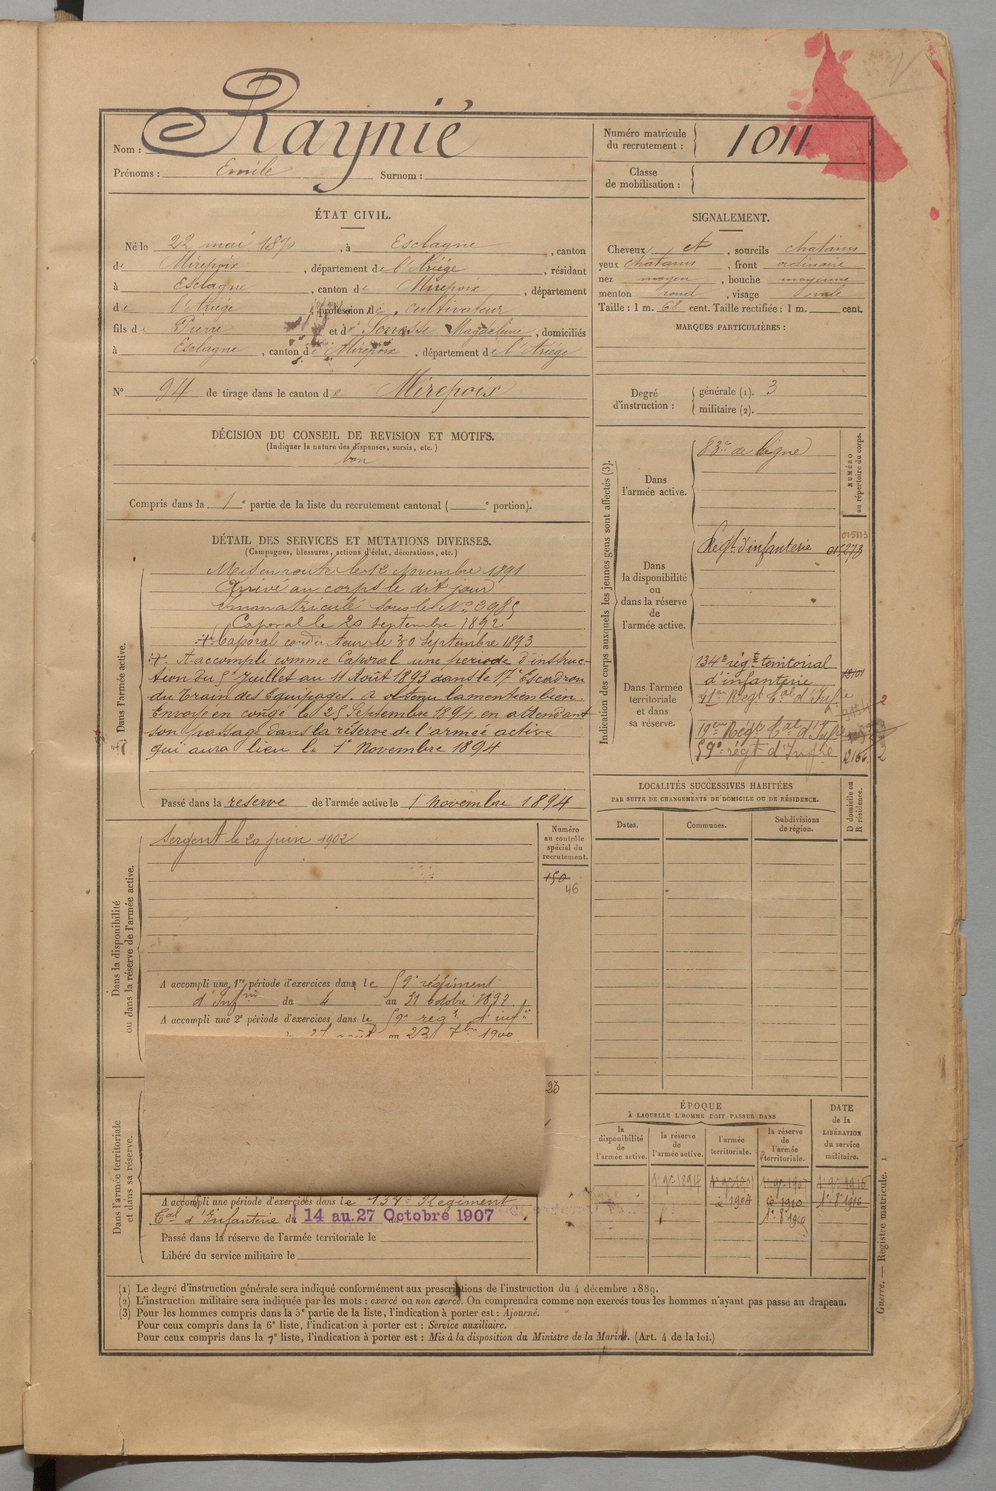 Nom : Raynié
Prénoms : Emile Surnom :
Numéro matricule du recrutement : 1011
Classe de mobilisation :
ÉTAT CIVIL.
Né le 22 mai 1870, à Esclagne, canton
de Mirepoix, département de l'Ariége, résidant
à Esclagne, canton de Mirepoix, département
de l'Ariége, profession de cultivateur
fils de Pierre et de Magdelaine, domiciliés
à Esclagne, canton de Mirepoix, département de l'Ariége
N° 94 de tirage dans le canton de Mirepoix
SIGNALEMENT.
Cheveux et, sourcils chatains
yeux chatains, front ordinaire
nez moyen, bouche moyenne
menton rond, visage ovale
Taille : 1 m. 61 cent. Taille rectifiée : 1 m. cent.
MARQUES PARTICULIÈRES :
Degré d'instruction : générale (1). 3
militaire (2).
DÉCISION DU CONSEIL DE REVISION ET MOTIFS.
(Indiquer la nature des dispenses, sursis, etc.)
bon
Compris dans la 1e partie de la liste du recrutement cantonal ( e portion).
DÉTAIL DES SERVICES ET MUTATIONS DIVERSES.
(Campagnes, blessures, actions d'éclat, décorations, etc.)
Dans l'armée active.
Mis en route le 12 Novembre 1891
Arrivé au corps le dit jour
immatriculé sous le N°
Caporal le 20 septembre 1892
Caporal conducteur le 30 Septembre 1893
A accompli comme Caporal une période d'instruc-
tion du 5 Juillet au 11 Août 1893 dans le 17e Escadron
du Train des Equipages. a obtenu la mention bien
Envoyé en congé le 25 Septembre 1894 en attendant
son passage dans la réserve de l'armée active
qui aura lieu le 1er Novembre 1894
Passé dans la reserve de l'armée active le 1 novembre 1894
Dans la disponibilité ou dans la réserve de l'armée active.
Sergent le 20 juin 1902
Numéro au contrôle spécial du recrutement.
150
46
A accompli une 1re période d'exercices dans le 59e régiment
d'Infrie du 4 au 31 octobre
A accompli une 2e période d'exercices dans le 59e régt d'infie
au 23 7bre 1900
23
Dans l'armée territoriale et dans sa réserve.
A accompli une période d'exercices dans le 134e Régiment
Eal d'Infanterie du 14 au 27 Octobre 1907
Passé dans la réserve de l'armée territoriale le
Libéré du service militaire le
Indication des corps auxquels les jeunes gens sont affectés (3).
NUMÉRO au répertoire du corps.
Dans l'armée active.
83e de ligne
Dans la disponibilité ou dans la réserve de l'armée active.
Regt d'infanterie
Dans l'armée territoriale et dans sa réserve.
134e régt territorial
d'infanterie
59e régt d'Infie
LOCALITÉS SUCCESSIVES HABITÉES
PAR SUITE DE CHANGEMENTS DE DOMICILE OU DE RÉSIDENCE.
Dates. Communes. Subdivisions de région. D domicile ou R résidence.
ÉPOQUE
À LAQUELLE L'HOMME DOIT PASSER DANS
la disponibilité de l'armée active. la réserve de l'armée active. l'armée territoriale. la réserve de l'armée territoriale.
DATE de la LIBÉRATION du service militaire.
Guerre. — Registre matricule. 1
(1) Le degré d'instruction générale sera indiqué conformément aux prescriptions de l'instruction du 4 décembre 1889.
(2) L'instruction militaire sera indiquée par les mots : exercé ou non exercé. On comprendra comme non exercés tous les hommes n'ayant pas passe au drapeau.
(3) Pour les hommes compris dans la 5e partie de la liste, l'indication à porter est : Ajourné.
Pour ceux compris dans la 6e liste, l'indication à porter est : Service auxiliaire.
Pour ceux compris dans la 7e liste, l'indication à porter est : Mis à la disposition du Ministre de la Marine. (Art. 4 de la loi.)